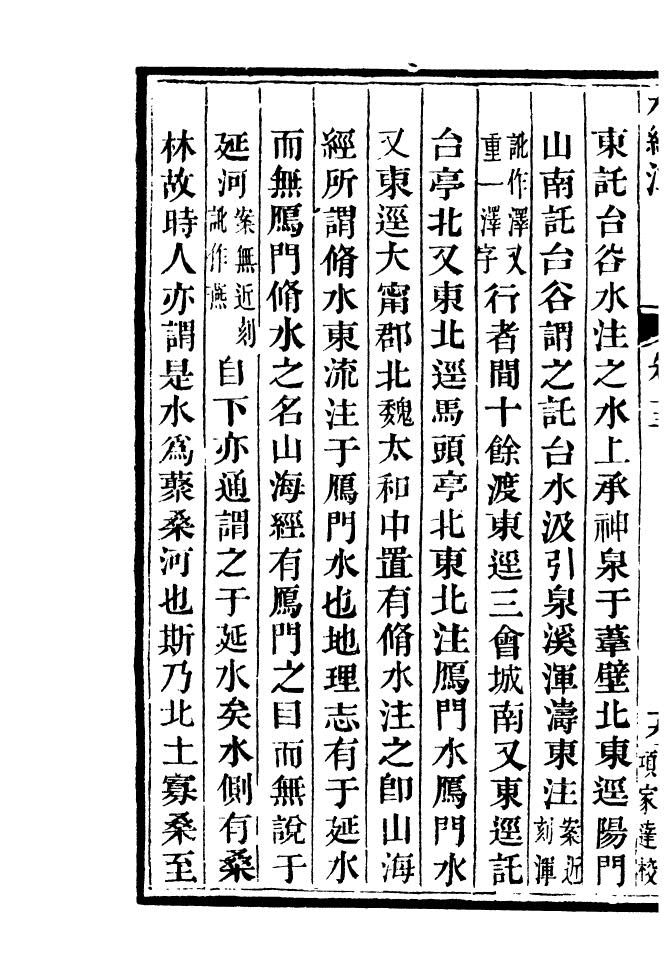 水經注 卷十三 項家達校
東託台谷水注之水上承神泉于葦壁北東逕陽門
山南託台谷謂之託台水汲引泉溪渾濤東注案近刻渾
訛作澤又重一澤字行者間十餘渡東逕三會城南又東逕託
台亭北又東北逕馬頭亭北東北注鴈門水鴈門水
又東逕大甯郡北魏太和中置有脩水注之卽山海
經所謂脩水東流注于鴈門水也地理志有于延水
而無鴈門脩水之名山海經有鴈門之目而無說于
延河案無近刻訛作燕自下亦通謂之于延水矣水側有桑
林故時人亦謂是水爲䕮桑河也斯乃北土寡桑至